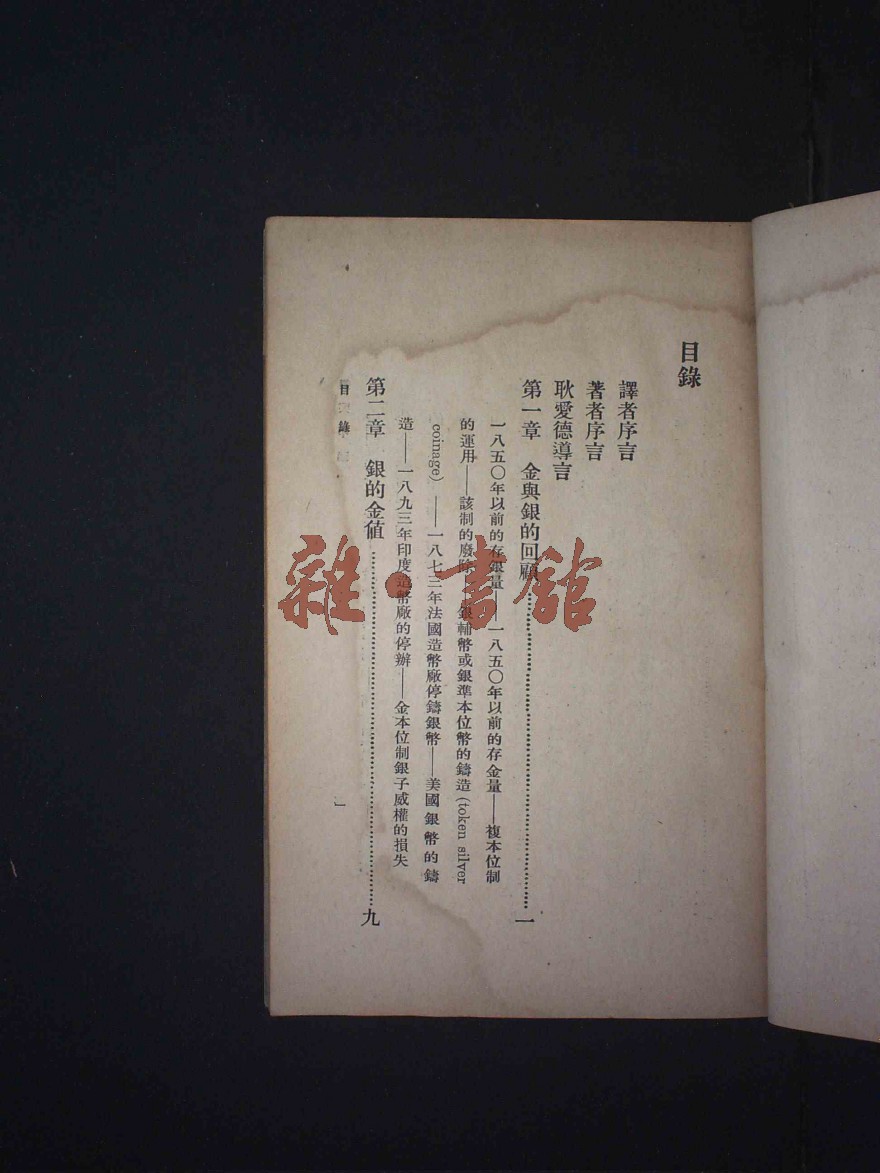 目錄
譯者序言
著者序言
耿愛德導言
第一章 金與銀的回顧……一
一八五〇年以前的存銀量——一八五〇年以前的存金量——複本位制
的運用——該制的廢除——銀輔幣或銀準本位幣的鑄造(token silver
coinage)——一八七三年法國造幣廠停鑄銀幣——美國銀幣的鑄
造——一八九三年印度造幣廠的停辦——金本位制銀子威權的損失
第二章 銀的金值……九
目錄
一
雜·書館